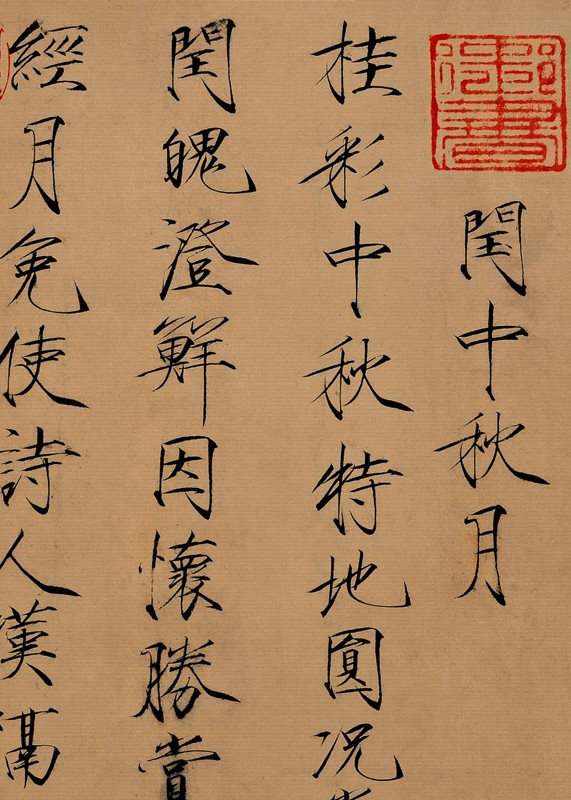 御書
閏中秋月
桂彩中秋特地圓况
閏魄澄鮮因懷勝賞
經月免使詩人